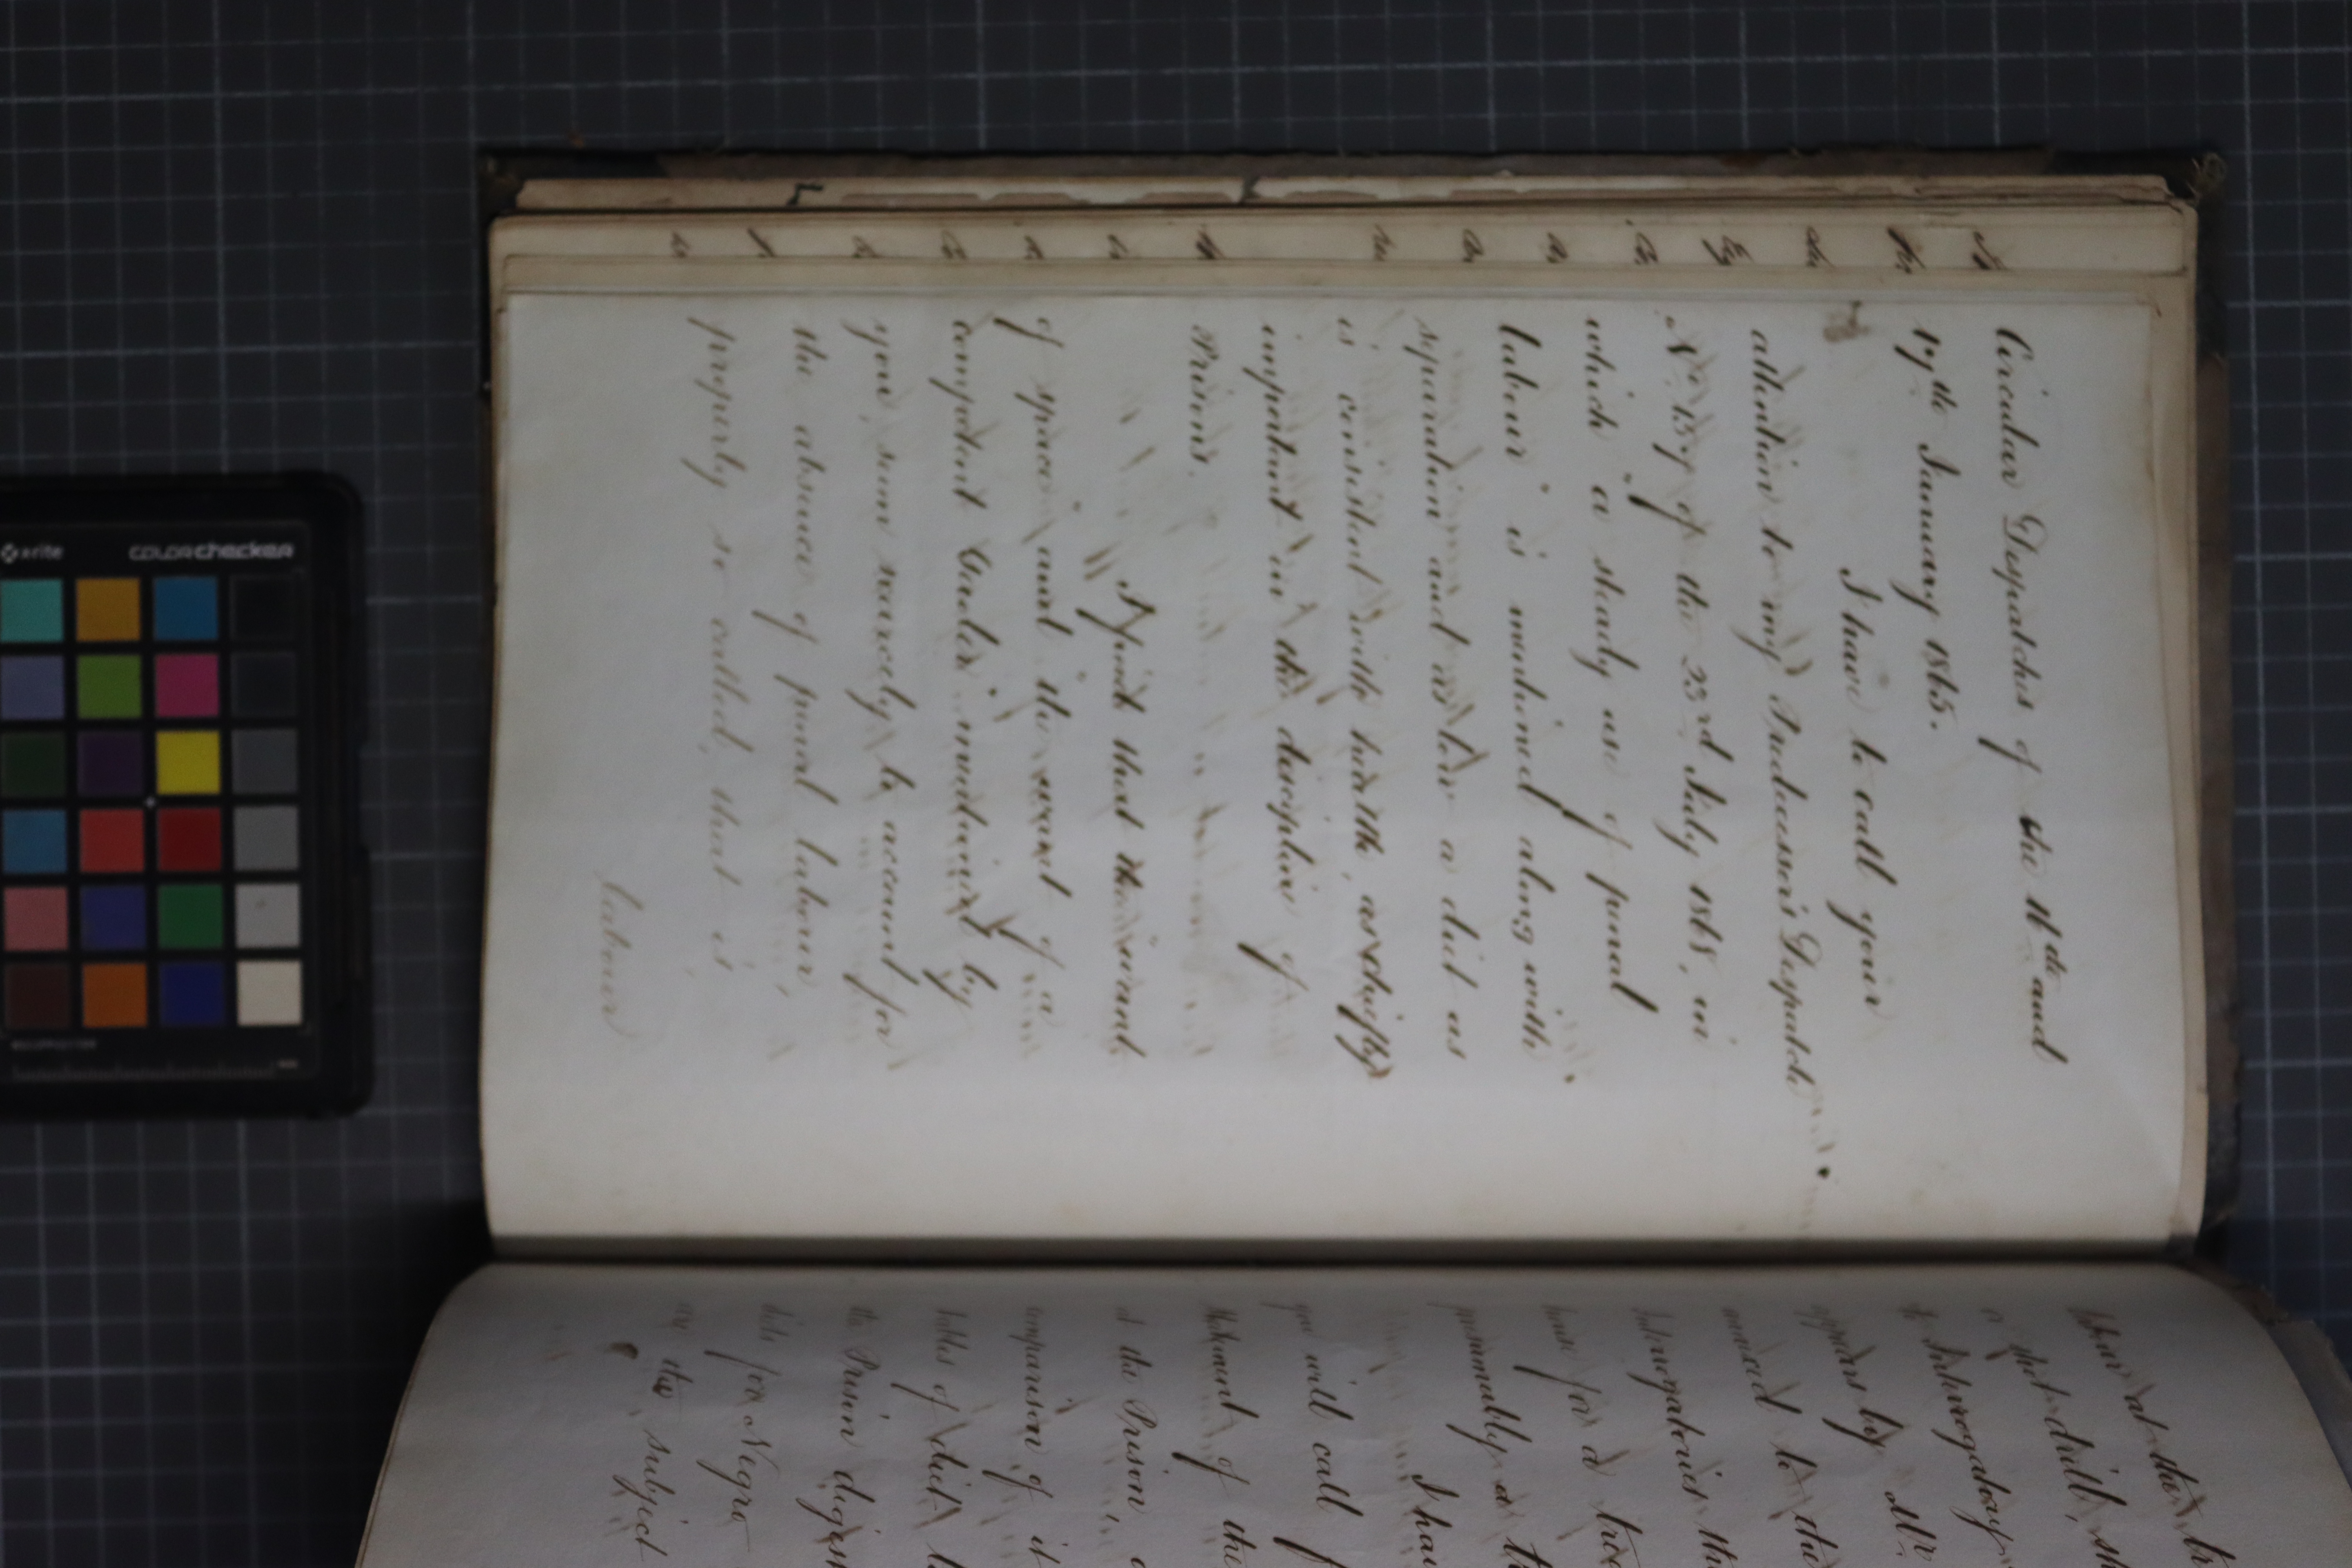 Circular Despatches of the 16th and
17th January 1865.
I have to call your
attention to my Predecessor's Despatch
No 159 of the 23rd July 1868, in
which a steady use of penal
labour is enjoined along with
separation and as low a diet as
is consistent with health, as chiefly
important in the discipline of
Prisons.
I find that the want
of space and the want of a
competent Gaoler mentioned by
you, seem scarcely to account for
the absence of penal labour,
properly so called, that is
labour
labour at the
or shot-drill,
Interrogatory
appears by Mr
annexed to the
Interrogatories
have for a
presumably a
I ha
you will call
Statement of the
at the Prison
comparison of it
tables of diet
the Prison digest
diets for Negro
on the subject
x-rite
colorchecker